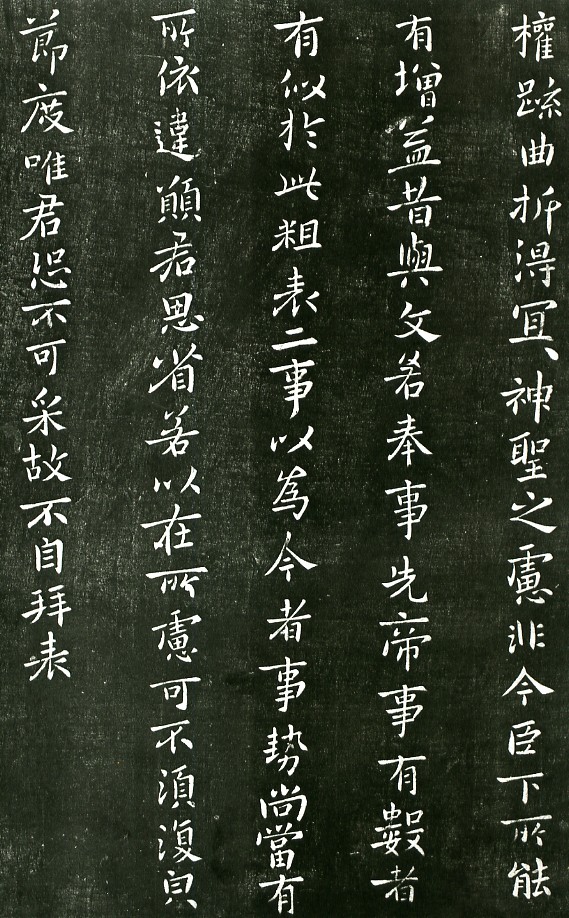 權踈曲折得冝神聖之慮非今臣下所能
有增益昔與文若奉事先帝事有數者
有似於此粗表二事以為今者事勢尚當有
所依違願君思省若以在所慮可不須復貝
節度唯君恐不可采故不自拜表